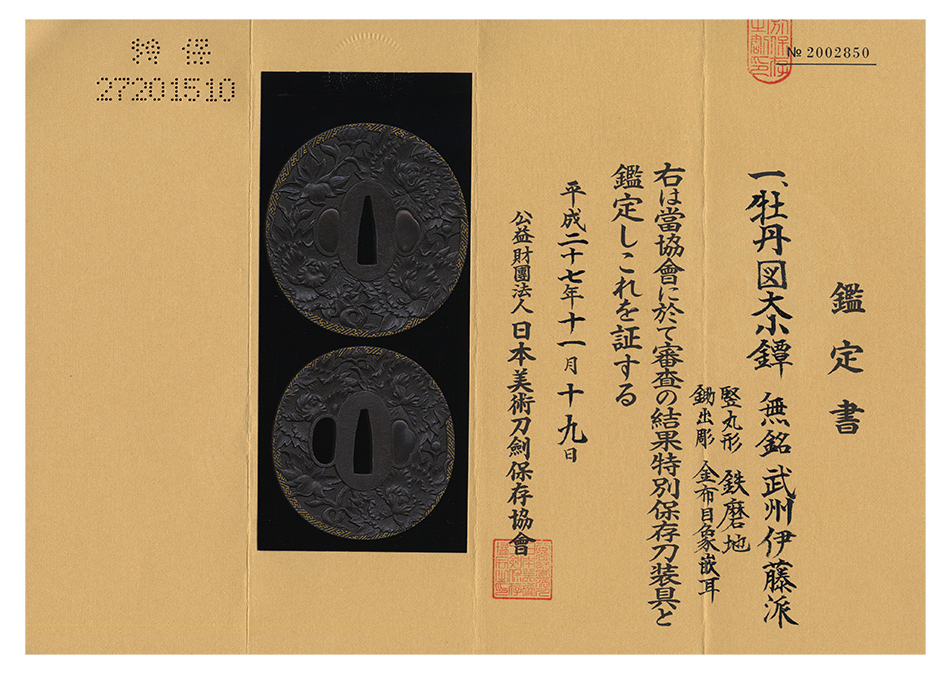 鑑定書
一、牡丹図大小鐔 無銘 武州伊藤派
竪丸形 鉄磨地
鋤出彫 金布目象嵌耳
右は當協會に於て審査の結果特別保存刀装具と
鑑定しこれを証する
平成二十七年十一月十九日
公益財團法人 日本美術刀劍保存協會
№ 2002850
27201510